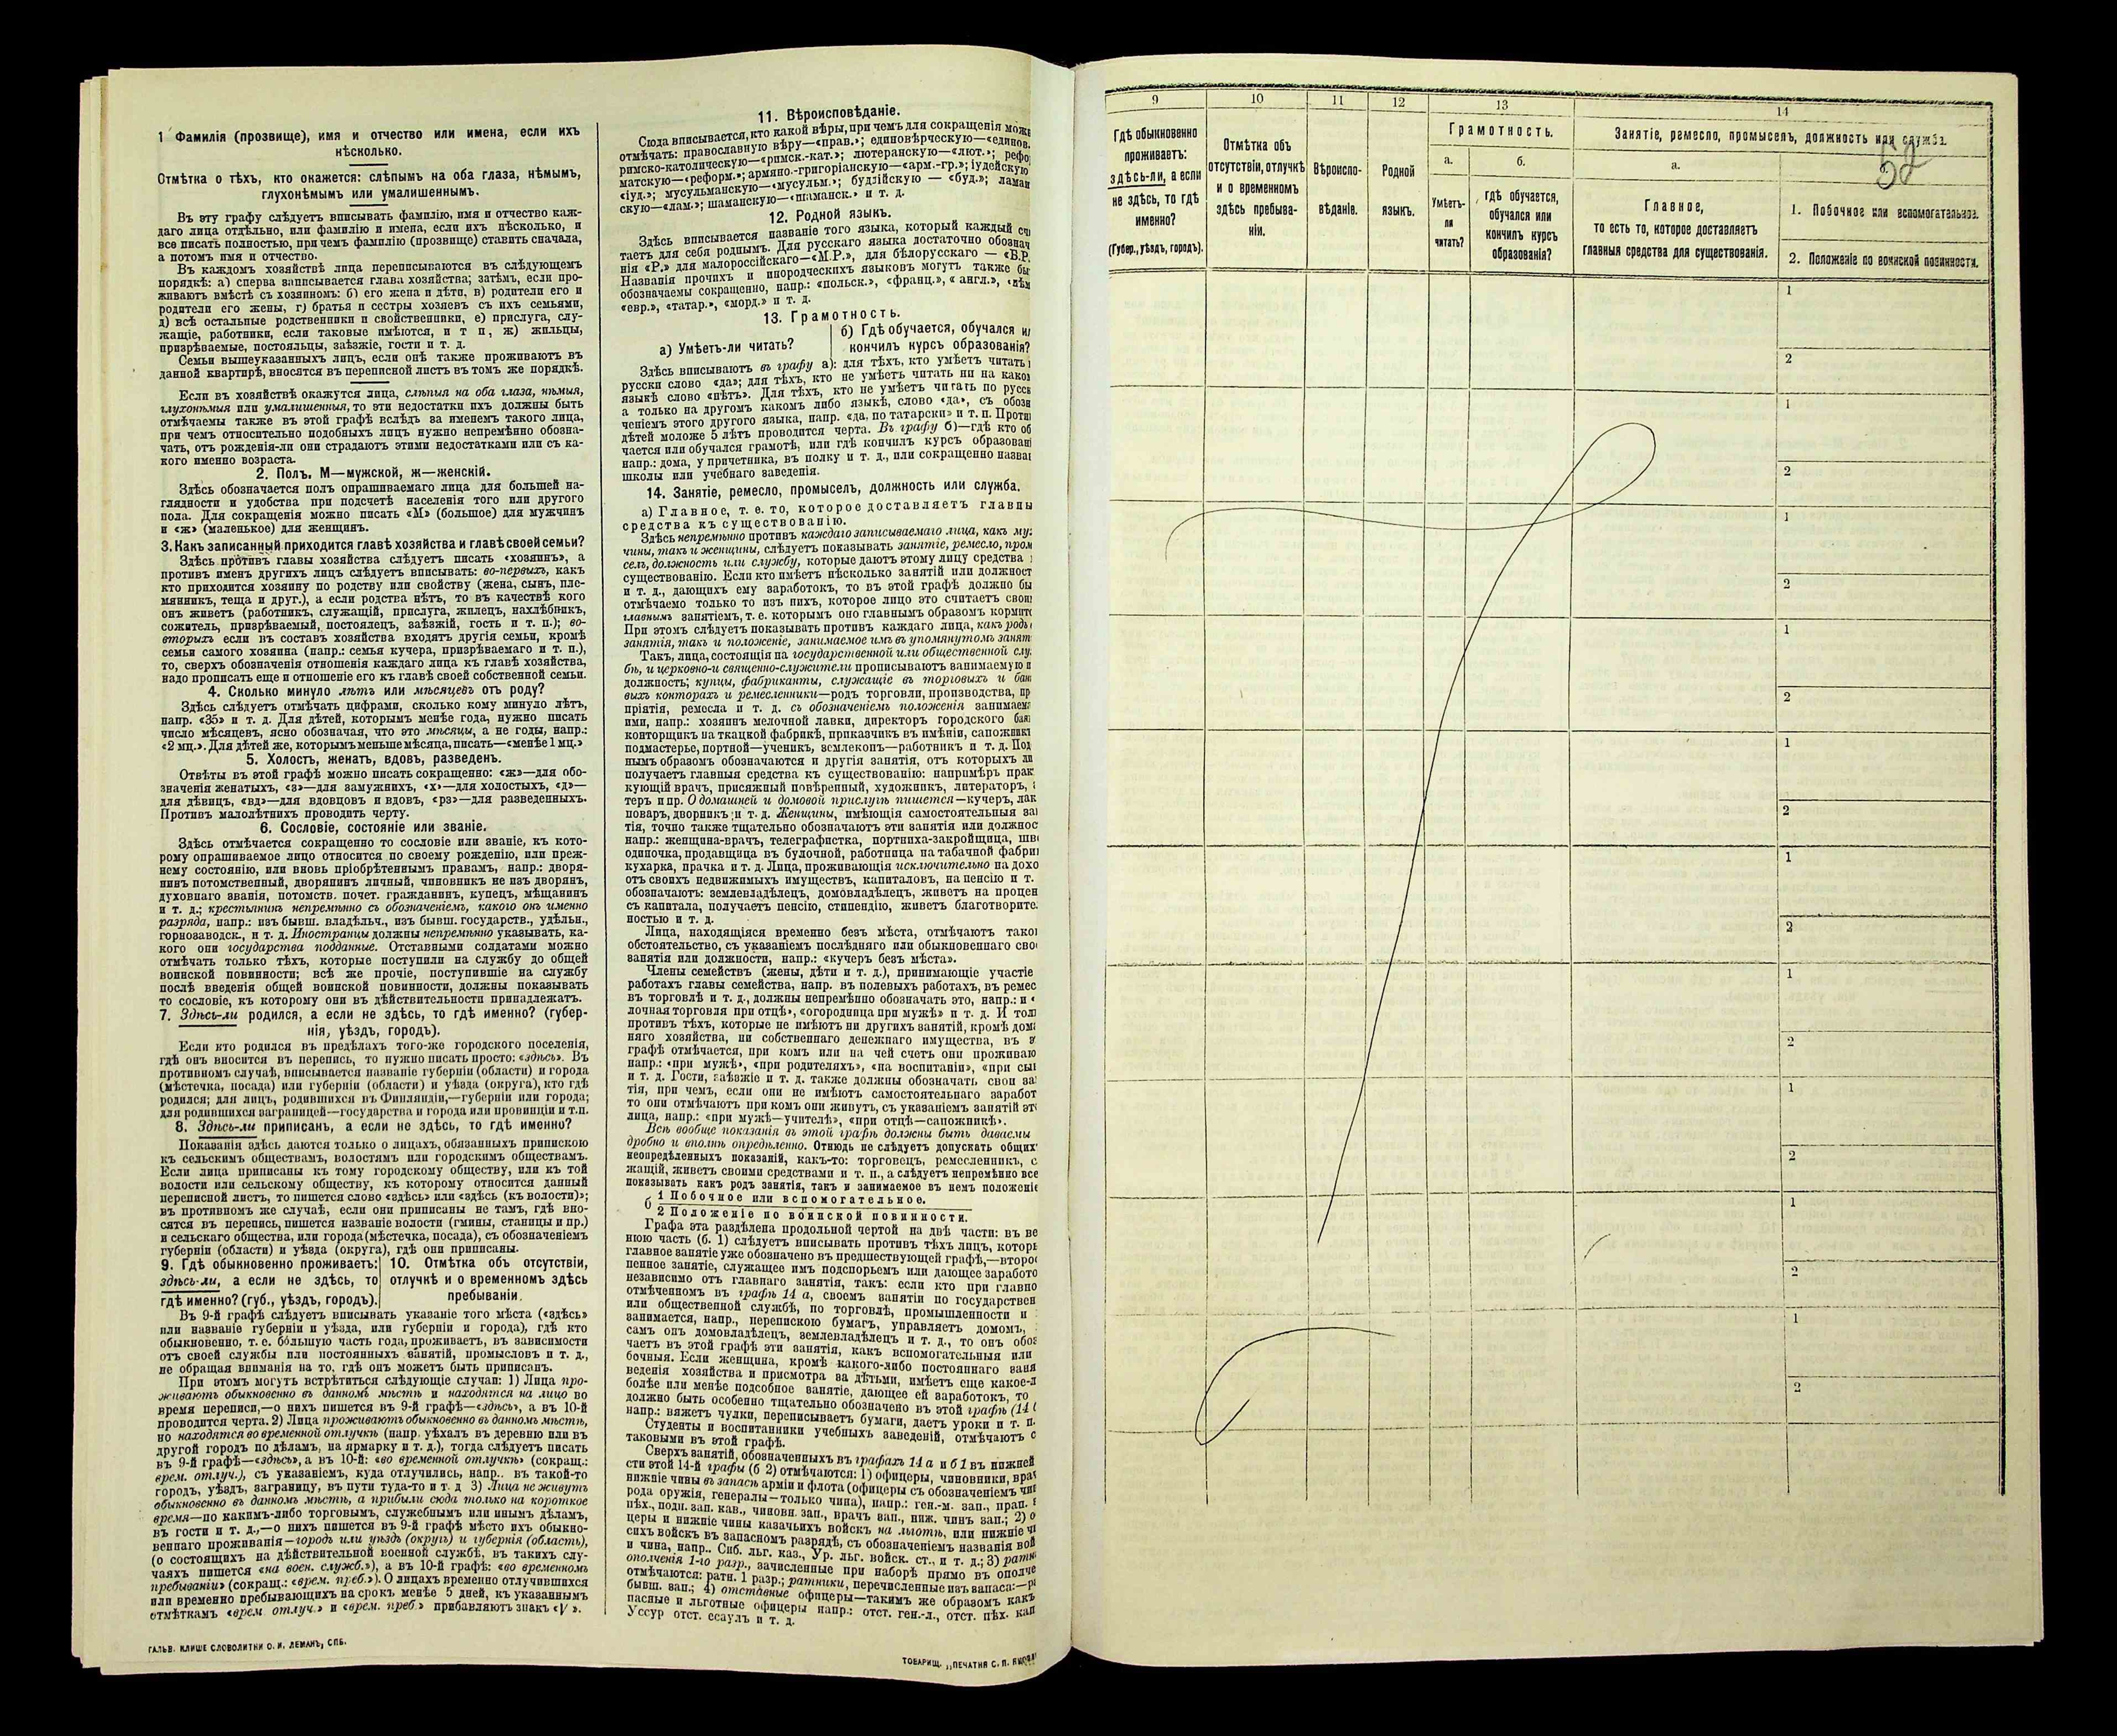 1 Фамилія (прозвище), имя и отчество или имена, если ихъ
нѣсколько.
Отмѣтка о тѣхъ, кто окажется: слѣпымъ на оба глаза, нѣмымъ,
глухонѣмымъ или умалишеннымъ.
Въ эту графу слѣдуетъ вписывать фамилію, имя и отчество каж-
даго лица отдѣльно, или фамилію и имена, если ихъ нѣсколько, и
все писать полностью, при чемъ фамилію (прозвище) ставить сначала,
а потомъ имя и отчество.
Въ каждомъ хозяйствѣ лица переписываются въ слѣдующемъ
порядкѣ: а) сперва вписывается глава хозяйства; затѣмъ, если про-
живаютъ вмѣстѣ съ хозяиномъ: б) его жена и дѣти, в) родители его и
родители его жены, г) братья и сестры хозяевъ съ ихъ семьями,
д) всѣ остальные родственники и свойственники, е) прислуга, слу-
жащіе, работники, если таковые имѣются, и т п, ж) жильцы,
призрѣваемые, постояльцы, заѣзжіе, гости и т. д.
Семьи вышеуказанныхъ лицъ, если онѣ также проживаютъ въ
данной квартирѣ, вносятся въ переписной листъ въ томъ же порядкѣ.
Если въ хозяйствѣ окажутся лица, слѣпыя на оба глаза, нѣмыя,
глухонѣмыя или умалишенныя, то эти недостатки ихъ должны быть
отмѣчаемы также въ этой графѣ вслѣдъ за именемъ такого лица,
при чемъ относительно подобныхъ лицъ нужно непремѣнно обозна-
чать, отъ рожденія-ли они страдаютъ этими недостатками или съ ка-
кого именно возраста.
2. Полъ, М—мужской, ж—женскій.
Здѣсь обозначается полъ опрашиваемаго лица для большей на-
глядности и удобства при подсчетѣ населенія того или другого
пола. Для сокращенія можно писать «М» (большое) для мужчинъ
и «ж» (маленькое) для женщинъ.
3. Какъ записанный приходится главѣ хозяйства и главѣ своей семьи?
Здѣсь противъ главы хозяйства слѣдуетъ писать «хозяинъ», а
противъ именъ другихъ лицъ слѣдуетъ вписывать: во-первыхъ, какъ
кто приходится хозяину по родству или свойству (жена, сынъ, пле-
мянникъ, теща и друг.), а если родства нѣтъ, то въ качествѣ кого
онъ живетъ (работникъ, служащій, прислуга, жилецъ, нахлѣбникъ,
сожитель, призрѣваемый, постоялецъ, заѣзжій, гость и т. п.); во-
вторыхъ если въ составъ хозяйства входятъ другія семьи, кромѣ
семьи самого хозяина (напр.: семья кучера, призрѣваемаго и т. п.),
то, сверхъ обозначенія отношенія каждаго лица къ главѣ хозяйства,
надо прописать еще и отношеніе его къ главѣ своей собственной семьи.
4. Сколько минуло лѣтъ или мѣсяцевъ отъ роду?
Здѣсь слѣдуетъ отмѣчать цифрами, сколько кому минуло лѣтъ,
напр. «35» и т. д. Для дѣтей, которымъ менѣе года, нужно писать
число мѣсяцевъ, ясно обозначая, что это мѣсяцы, а не годы, напр.:
«2 мц.». Для дѣтей же, которымъ меньше мѣсяца, писать—«менѣе 1 мц.»
5. Холостъ, женатъ, вдовъ, разведенъ.
Отвѣты въ этой графѣ можно писать сокращенно: «ж»—для обо-
значенія женатыхъ, «з»—для замужнихъ, «х»—для холостыхъ, «д»—
для дѣвицъ, «вд»—для вдовцовъ и вдовъ, «рз»—для разведенныхъ.
Противъ малолѣтнихъ проводить черту.
6. Сословіе, состояніе или званіе.
Здѣсь отмѣчается сокращенно то сословіе или званіе, къ кото-
рому опрашиваемое лицо относится по своему рожденію, или преж-
нему состоянію, или вновь пріобрѣтеннымъ правамъ, напр.: дворя-
нинъ потомственный, дворянинъ личный, чиновникъ не изъ дворянъ,
духовнаго званія, потомств. почет. гражданинъ, купецъ, мѣщанинъ
и т. д.; крестьянинъ непремѣнно съ обозначеніемъ, какого онъ именно
разряда, напр.: изъ бывш. владѣльч., изъ бывш. государств., удѣльн.,
горнозаводск., и т. д. Иностранцы должны непремѣнно указывать, ка-
кого они государства подданные. Отставными солдатами можно
отмѣчать только тѣхъ, которые поступили на службу до общей
воинской повинности; всѣ же прочіе, поступившіе на службу
послѣ введенія общей воинской повинности, должны показывать
то сословіе, къ которому они въ дѣйствительности принадлежатъ.
7. Здѣсь-ли родился, а если не здѣсь, то гдѣ именно? (губер-
нія, уѣздъ, городъ).
Если кто родился въ предѣлахъ того-же городского поселенія,
гдѣ онъ вносится въ перепись, то нужно писать просто: «здѣсь». Въ
противномъ случаѣ, вписывается названіе губерніи (области) и города
(мѣстечка, посада) или губерніи (области) и уѣзда (округа), кто гдѣ
родился; для лицъ, родившихся въ Финляндіи,—губерніи или города;
для родившихся заграницей—государства и города или провинціи и т.п.
8. Здѣсь-ли приписанъ, а если не здѣсь, то гдѣ именно?
Показанія здѣсь даются только о лицахъ, обязанныхъ припискою
къ сельскимъ обществамъ, волостямъ или городскимъ обществамъ.
Если лица приписаны къ тому городскому обществу, или къ той
волости или сельскому обществу, къ которому относится данный
переписной листъ, то пишется слово «здѣсь» или «здѣсь (къ волости)»;
въ противномъ же случаѣ, если они приписаны не тамъ, гдѣ вно-
сятся въ перепись, пишется названіе волости (гмины, станицы и пр.)
и сельскаго общества, или города (мѣстечка, посада), съ обозначеніемъ
губерніи (области) и уѣзда (округа), гдѣ они приписаны.
9. Гдѣ обыкновенно проживаетъ:
здѣсь-ли, а если не здѣсь, то
гдѣ именно? (губ., уѣздъ, городъ).
10. Отмѣтка объ отсутствіи,
отлучкѣ и о временномъ здѣсь
пребываніи.
Въ 9-й графѣ слѣдуетъ вписывать указаніе того мѣста («здѣсь»
или названіе губерніи и уѣзда, или губерніи и города), гдѣ кто
обыкновенно, т. е. бо́льшую часть года, проживаетъ, въ зависимости
отъ своей службы или постоянныхъ занятій, промысловъ и т. д.,
не обращая вниманія на то, гдѣ онъ можетъ быть приписанъ.
При этомъ могутъ встрѣтиться слѣдующіе случаи: 1) Лица про-
живаютъ обыкновенно въ данномъ мѣстѣ и находятся на лицо во
время переписи,—о нихъ пишется въ 9-й графѣ—«здѣсь», а въ 10-й
проводится черта. 2) Лица проживаютъ обыкновенно въ данномъ мѣстѣ,
но находятся во временной отлучкѣ (напр. уѣхалъ въ деревню или въ
другой городъ по дѣламъ, на ярмарку и т. д.), тогда слѣдуетъ писать
въ 9-й графѣ—«здѣсь», а въ 10-й: «во временной отлучкѣ» (сокращ.:
врем. отлуч.), съ указаніемъ, куда отлучились, напр.. въ такой-то
городъ, уѣздъ, заграницу, въ пути туда-то и т. д 3) Лица не живутъ
обыкновенно въ данномъ мѣстѣ, а прибыли сюда только на короткое
время—по какимъ-либо торговымъ, служебнымъ или инымъ дѣламъ,
въ гости и т. д.,—о нихъ пишется въ 9-й графѣ мѣсто ихъ обыкно-
веннаго проживанія—городъ или уѣздъ (округъ) и губернія (область),
(о состоящихъ на дѣйствительной военной службѣ, въ такихъ слу-
чаяхъ пишется «на воен. служб.»), а въ 10-й графѣ: «во временномъ
пребываніи» (сокращ.: «врем. преб.»). О лицахъ временно отлучившихся
или временно пребывающихъ на срокъ менѣе 5 дней, къ указаннымъ
отмѣткамъ «врем отлуч.» и «врем. преб.» прибавляютъ знакъ «V».
ГАЛЬВ. КЛИШЕ СЛОВОЛИТНИ О. И. ЛЕМАНЪ, СПБ.
11. Вѣроисповѣданіе.
Сюда вписывается, кто какой вѣры, при чемъ для сокращенія можн
отмѣчать: православную вѣру—«прав.»; единовѣрческую—«единов.
римско-католическую—«римск.-кат.»; лютеранскую—«лют.»; рефо
матскую—«реформ.»; армяно.-григоріанскую—«арм.-гр.»; іудейскую
«іуд.»; мусульманскую—«мусульм.»; буддійскую — «буд.»; ламаи
скую—«лам.»; шаманскую—«шаманск.» и т. д.
12. Родной языкъ.
Здѣсь вписывается названіе того языка, который каждый счи
таетъ для себя роднымъ. Для русскаго языка достаточно обознач
нія «Р.» для малороссійскаго—«М.Р.», для бѣлорусскаго — «Б.Р.
Названія прочихъ и инородческихъ языковъ могутъ также бы
обозначаемы сокращенно, напр.: «польск.», «франц.», «англ.», «нѣм
«евр.», «татар.», «морд.» и т. д.
13. Грамотность.
а) Умѣетъ-ли читать?
б) Гдѣ обучается, обучался и
кончилъ курсъ образованія?
Здѣсь вписываютъ въ графу а): для тѣхъ, кто умѣетъ читать
русски слово «да»; для тѣхъ, кто не умѣетъ читать ни на како
языкѣ слово «нѣтъ». Для тѣхъ, кто не умѣетъ читать по русск
а только на другомъ какомъ либо языкѣ, слово «да», съ обозн
ченіемъ этого другого языка, напр. «да, по татарски» и т. п. Проти
дѣтей моложе 5 лѣтъ проводится черта. Въ графу б)—гдѣ кто об
чается или обучался грамотѣ, или гдѣ кончилъ курсъ образовані
напр.: дома, у причетника, въ полку и т. д., или сокращенно назва
школы или учебнаго заведенія.
14. Занятіе, ремесло, промыселъ, должность или служба.
а) Главное, т. е. то, которое доставляетъ главны
средства къ существованію.
Здѣсь непремѣнно противъ каждаго записываемаго лица, какъ му
чины, такъ и женщины, слѣдуетъ показывать занятіе, ремесло, пром
селъ, должность или службу, которые даютъ этому лицу средства
существованію. Если кто имѣетъ нѣсколько занятій или должност
и т. д., дающихъ ему заработокъ, то въ этой графѣ должно бы
отмѣчаемо только то изъ нихъ, которое лицо это считаетъ свои
главнымъ занятіемъ, т. е. которымъ оно главнымъ образомъ кормит
При этомъ слѣдуетъ показывать противъ каждаго лица, какъ родъ
занятія, такъ и положеніе, занимаемое имъ въ упомянутомъ занят
Такъ, лица, состоящія на государственной или общественной слу
бѣ, и церковно-и священно-служители прописываютъ занимаемую и
должность; купцы, фабриканты, служащіе въ торговыхъ и бан
выхъ конторахъ и ремесленники—родъ торговли, производства, пр
пріятія, ремесла и т. д. съ обозначеніемъ положенія занимаем
ими, напр.: хозяинъ мелочной лавки, директоръ городского бан
конторщикъ на ткацкой фабрикѣ, приказчикъ въ имѣніи, сапожникъ
подмастерье, портной—ученикъ, землекопъ—работникъ и т. д. Под
нымъ образомъ обозначаются и другія занятія, отъ которыхъ ли
получаетъ главныя средства къ существованію: напримѣръ прак
кующій врачъ, присяжный повѣренный, художникъ, литераторъ,
теръ и пр. О домашней и домовой прислугѣ пишется—кучеръ, лак
поваръ, дворникъ и т. д. Женщины, имѣющія самостоятельныя за
тія, точно также тщательно обозначаютъ эти занятія или должнос
напр.: женщина-врачъ, телеграфистка, портниха-закройщица, шв
одиночка, продавщица въ булочной, работница на табачной фабри
кухарка, прачка и т. д. Лица, проживающія исключительно на дохо
отъ своихъ недвижимыхъ имуществъ, капиталовъ, на пенсію и т.
обозначаютъ: землевладѣлецъ, домовладѣлецъ, живетъ на процен
съ капитала, получаетъ пенсію, стипендію, живетъ благотворите
ностью и т. д.
Лица, находящіяся временно безъ мѣста, отмѣчаютъ тако
обстоятельство, съ указаніемъ послѣдняго или обыкновеннаго сво
занятія или должности, напр.: «кучеръ безъ мѣста».
Члены семействъ (жены, дѣти и т. д.), принимающіе участіе
работахъ главы семейства, напр. въ полевыхъ работахъ, въ ремес
въ торговлѣ и т. д., должны непремѣнно обозначать это, напр.: и «
лочная торговля при отцѣ», «огородница при мужѣ» и т. д. И тол
противъ тѣхъ, которые не имѣютъ ни другихъ занятій, кромѣ дом
няго хозяйства, ни собственнаго денежнаго имущества, въ э
графѣ отмѣчается, при комъ или на чей счетъ они проживаю
напр.: «при мужѣ», «при родителяхъ», «на воспитаніи», «при сы
и т. д. Гости, заѣзжіе и т. д. также должны обозначать свои за
тія, при чемъ, если они не имѣютъ самостоятельнаго заработ
то они отмѣчаютъ при комъ они живутъ, съ указаніемъ занятій эт
лица, напр.: «при мужѣ—учителѣ», «при отцѣ—сапожникѣ».
Всѣ вообще показанія въ этой графѣ должны быть даваемы
дробно и вполнѣ опредѣленно. Отнюдь не слѣдуетъ допускать общих
неопредѣленныхъ показаній, какъ-то: торговецъ, ремесленникъ, с
жащій, живетъ своими средствами и т. п., а слѣдуетъ непремѣнно все
показывать какъ родъ занятія, такъ и занимаемое въ немъ положені
б
1 Побочное или вспомогательное.
2 Положеніе по воинской повинности.
Графа эта раздѣлена продольной чертой на двѣ части: въ ве
нюю часть (б. 1) слѣдуетъ вписывать противъ тѣхъ лицъ, которы
главное занятіе уже обозначено въ предшествующей графѣ,—второс
пенное занятіе, служащее имъ подспорьемъ или дающее заработо
независимо отъ главнаго занятія, такъ: если кто при главно
отмѣченномъ въ графѣ 14 а, своемъ занятіи по государствен
или общественной службѣ, по торговлѣ, промышленности и
занимается, напр., перепискою бумагъ, управляетъ домомъ,
самъ онъ домовладѣлецъ, землевладѣлецъ и т. д., то онъ обоз
чаетъ въ этой графѣ эти занятія, какъ вспомогательныя или
бочныя. Если женщина, кромѣ какого-либо постояннаго заня
веденія хозяйства и присмотра за дѣтьми, имѣетъ еще какое-л
болѣе или менѣе подсобное занятіе, дающее ей заработокъ, то
должно быть особенно тщательно обозначено въ этой графѣ (14 б
напр.: вяжетъ чулки, переписываетъ бумаги, даетъ уроки и т. п.
Студенты и воспитанники учебныхъ заведеній, отмѣчаютъ с
таковыми въ этой графѣ.
Сверхъ занятій, обозначенныхъ въ графахъ 14 а и б 1 въ нижней
сти этой 14-й графы (б 2) отмѣчаются: 1) офицеры, чиновники, врач
нижніе чины въ запасѣ арміи и флота (офицеры съ обозначеніемъ чин
рода оружія, генералы—только чина), напр.: ген.-м. зап., прап.
пѣх., подп. зап. кав., чиновн. зап., врачъ зап., ниж. чинъ зап.; 2) о
церы и нижніе чины казачьихъ войскъ на льготѣ, или нижніе чи
сихъ войскъ въ запасномъ разрядѣ, съ обозначеніемъ названія вой
и чина, напр.. Сиб. льг. каз., Ур. льг. войск. ст., и т. д.; 3) ратни
ополченія 1-го разр., зачисленные при наборѣ прямо въ ополче
отмѣчаются: ратн. 1 разр.; ратники, перечисленные изъ запаса:—ра
бывш. зап.; 4) отставные офицеры—такимъ же образомъ какъ
пасные и льготные офицеры напр.: отст. ген.-л., отст. пѣх. кап
Уссур отст. есаулъ и т. д.
ТОВАРИЩ. „ПЕЧАТНЯ С. П.
9
10
11
12
13
14
Гдѣ обыкновенно
проживаетъ:
здѣсь-ли, а если
не здѣсь, то гдѣ
именно?
(Губер., уѣздъ, городъ).
Отмѣтка объ
отсутствіи, отлучкѣ
и о временномъ
здѣсь пребыва-
ніи.
Вѣроиспо-
вѣданіе.
Родной
языкъ.
Грамотность.
а.
б.
Умѣетъ-
ли
читать?
гдѣ обучается,
обучался или
кончилъ курсъ
образованія?
Занятіе, ремесло, промыселъ, должность или служба.
52
а.
Главное,
то есть то, которое доставляетъ
главныя средства для существованія.
1. Побочное или вспомогательное.
2. Положеніе по воинской повинности.
1
2
1
2
1
2
1
2
1
2
1
2
1
2
1
2
1
2
1
2